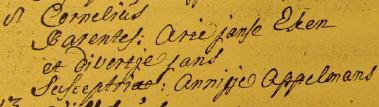 8 Cornelius
Parentes: Arie Janse Eken
et divertje Jans
Susceptrix: Annitje Appelmans